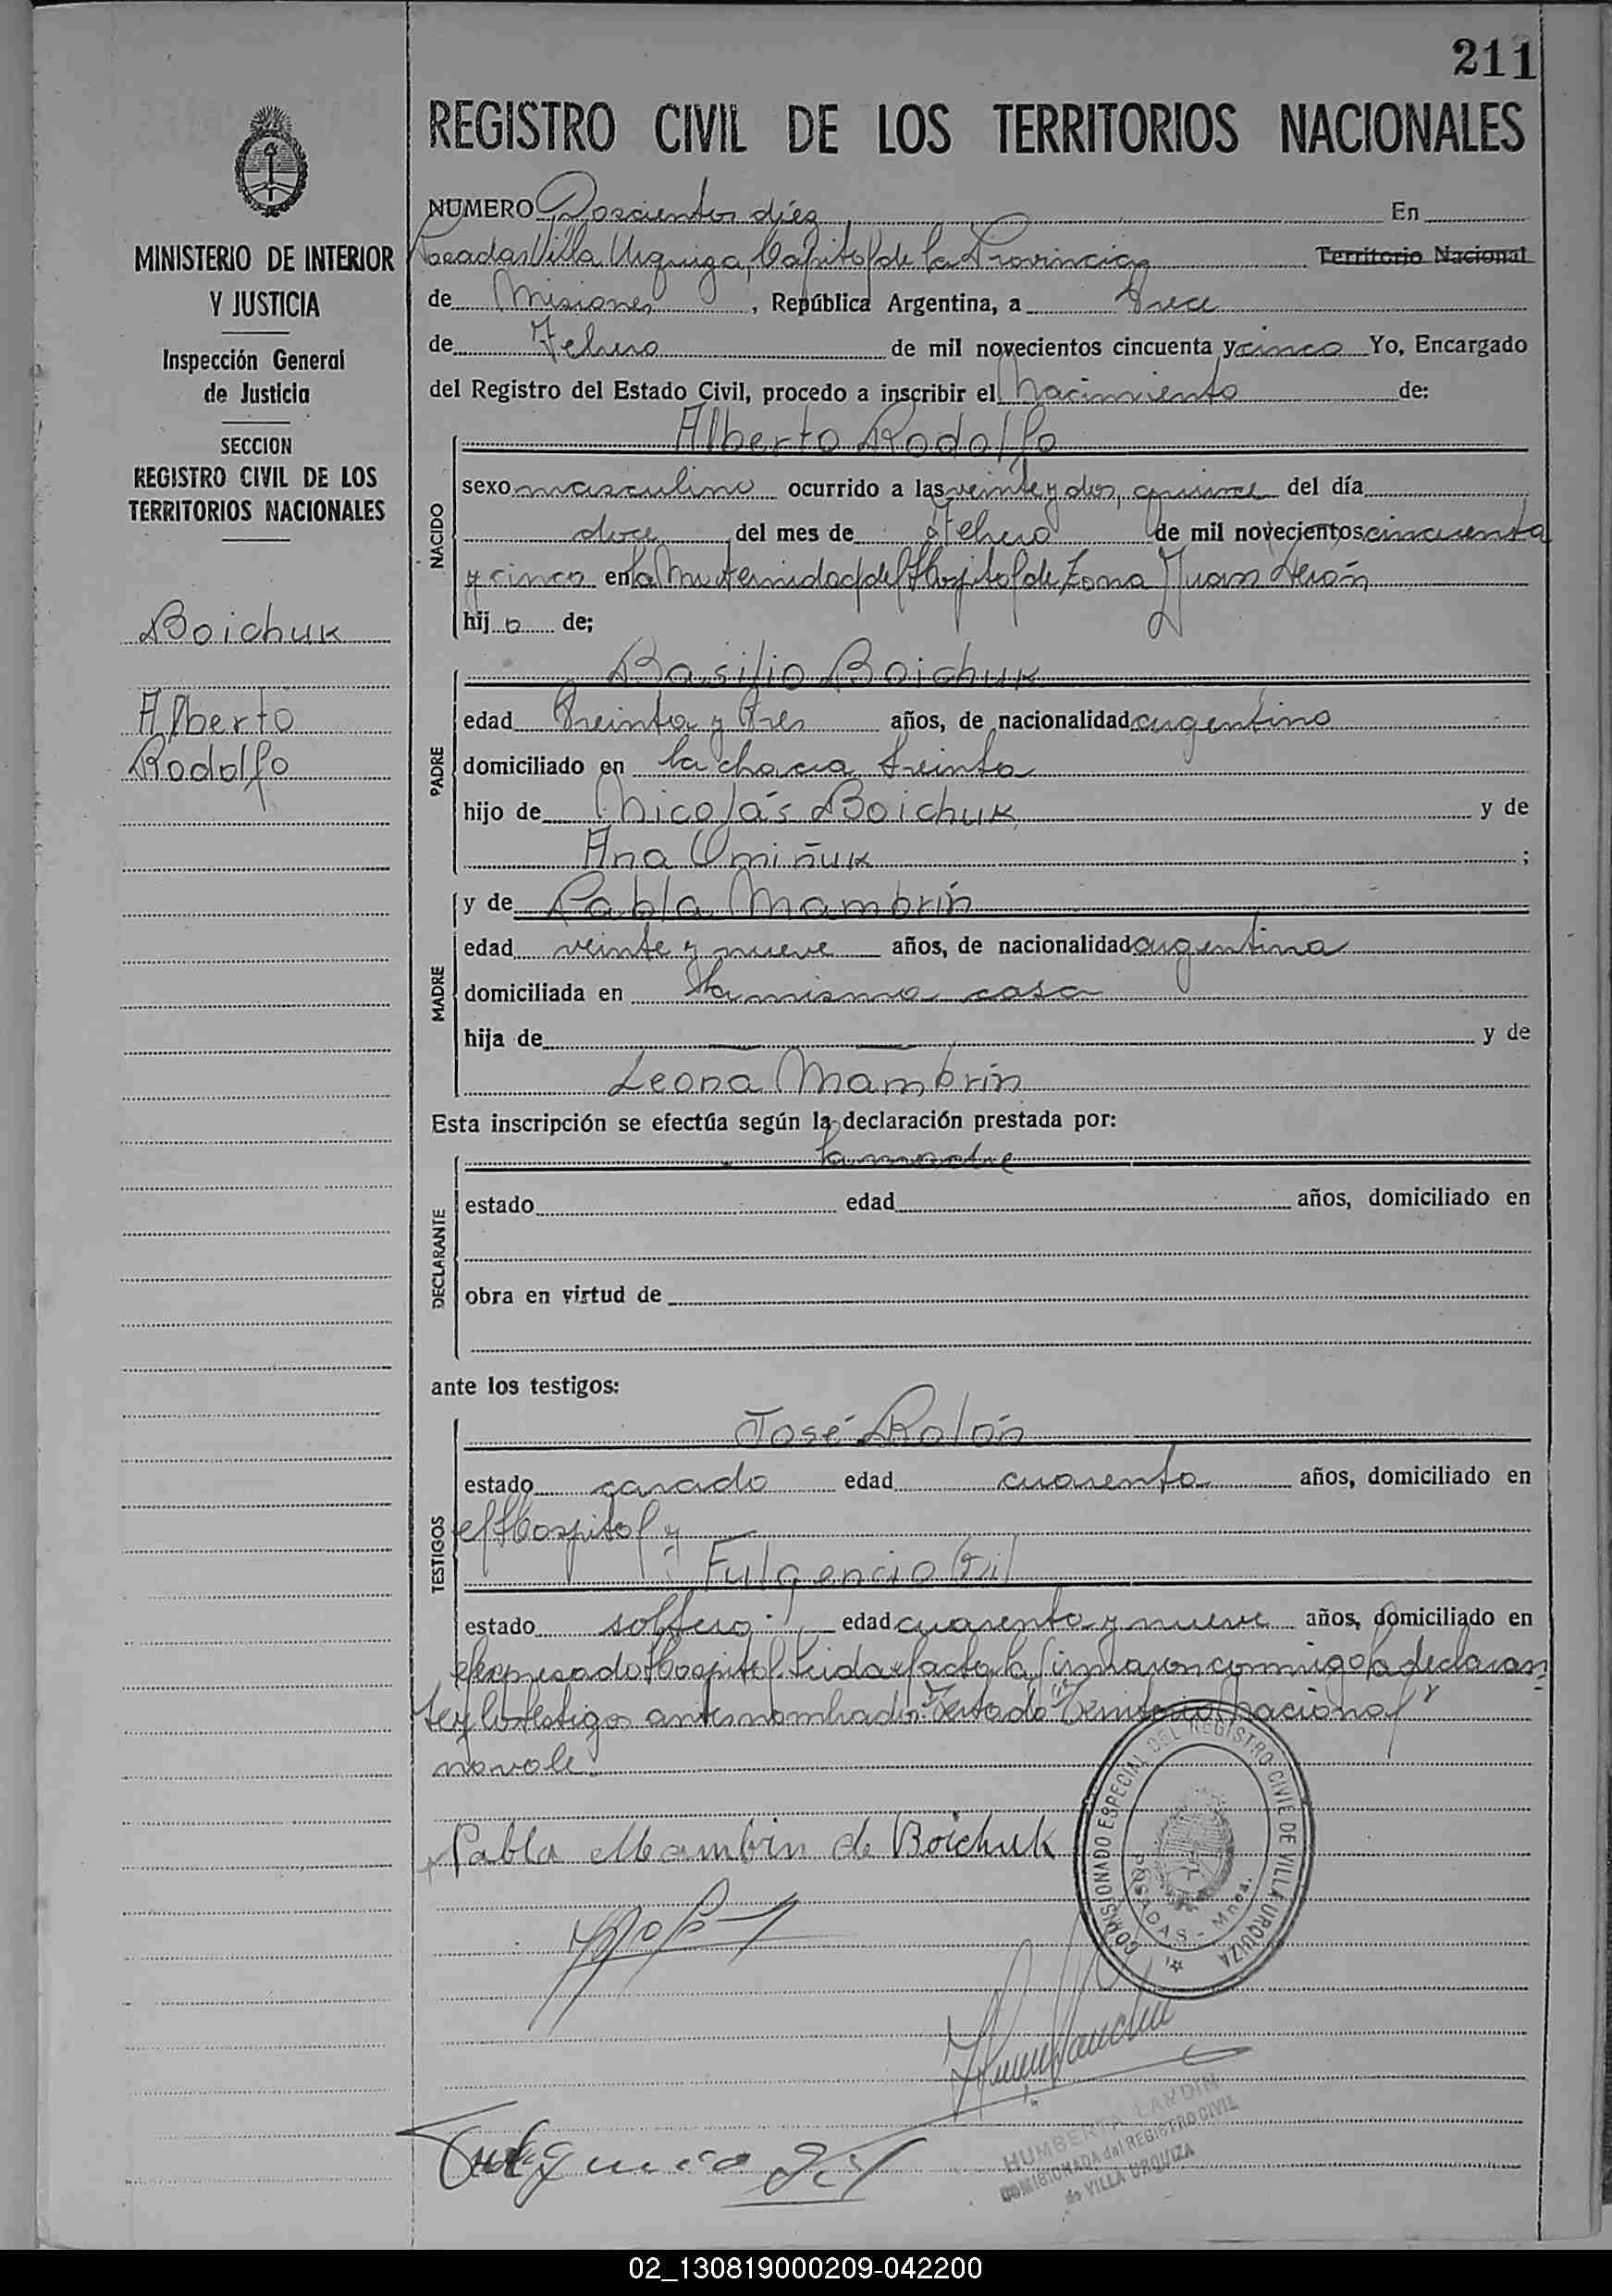 211
REGISTRO CIVIL DE LOS TERRITORIOS NACIONALES
MINISTERIO DE INTERIOR
Y JUSTICIA
Inspección General
de Justicia
SECCION
REGISTRO CIVIL DE LOS
TERRITORIOS NACIONALES
Boichuk
Alberto
Rodolfo
NUMERO Doscientos diez En
Posadas Villa Urquiza, Capital de la Provincia Territorio Nacional
de Misiones, República Argentina, a trece
de Febrero de mil novecientos cincuenta y cinco Yo, Encargado
del Registro del Estado Civil, procedo a inscribir el Nacimiento de:
NACIDO
Alberto Rodolfo
sexo masculino ocurrido a las veinte y dos, quince del día
doce del mes de Febrero de mil novecientos cincuenta
y cinco en la Maternidad del Hospital de Zona Juan Perón
hijo de;
PADRE
Basilio Boichuk
edad Treinta y Tres años, de nacionalidad argentino
domiciliado en la chacra treinta
hijo de Nicolás Boichuk y de
Ana Omiñuk ;
MADRE
y de Pabla Mambrín
edad veinte y nueve años, de nacionalidad argentina
domiciliada en la misma casa
hija de — — y de
Leona Mambrín
Esta inscripción se efectúa según la declaración prestada por:
DECLARANTE
la madre
estado edad años, domiciliado en
obra en virtud de
ante los testigos:
TESTIGOS
José Rolón
estado casado edad cuarenta años, domiciliado en
el Hospital y
Fulgencio Gil
estado soltero edad cuarenta y nueve años, domiciliado en
el expresado Hospital. Leida el acta, la firmaron conmigo la declaran
te y los testigos antes nombrados. Testado "Territorio Nacional"
no vale.
Pabla Mambrin de Boichuk
COMISIONADO ESPECIAL DEL REGISTRO CIVIL DE VILLA URQUIZA
POSADAS - Mnes.
Fulgencio Gil
HUMBERTA LANDIN
COMISIONADA del REGISTRO CIVIL
de VILLA URQUIZA
02_130819000209-042200